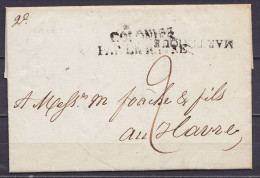 2º
COLONIES
PAR LE HAVRE
MARTINIQUE
2
A Mess.rs M foäche & fils
au Havre